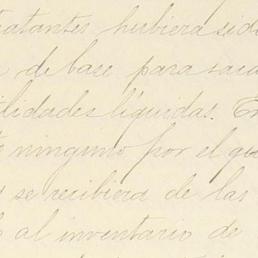 tratantes hubiera sid
de base para saca
ilidades líquidas. En
ninguno por el qu
se recibiera de las
al inventario de